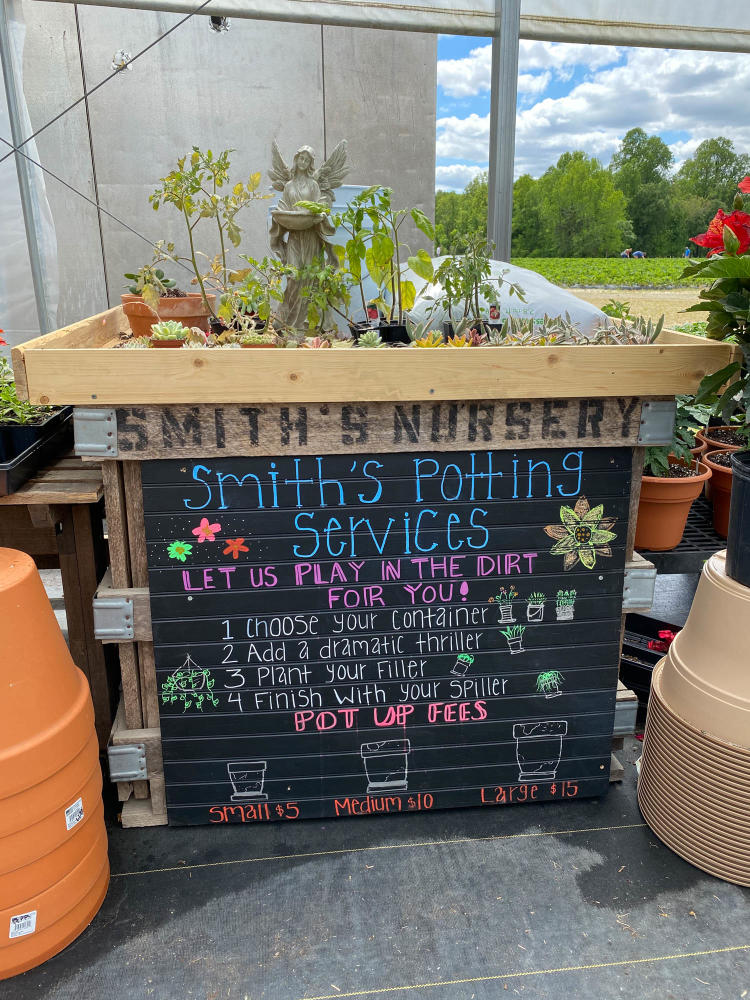 SMITH'S NURSERY
Smith's Potting
Services
LET US PLAY IN THE DIRT
FOR YOU!
1 Choose your container
2 Add a dramatic thriller
3 Plant your Filler
4 Finish with your spiller
POT UP FEES
Small $5 Medium $10 Large $15